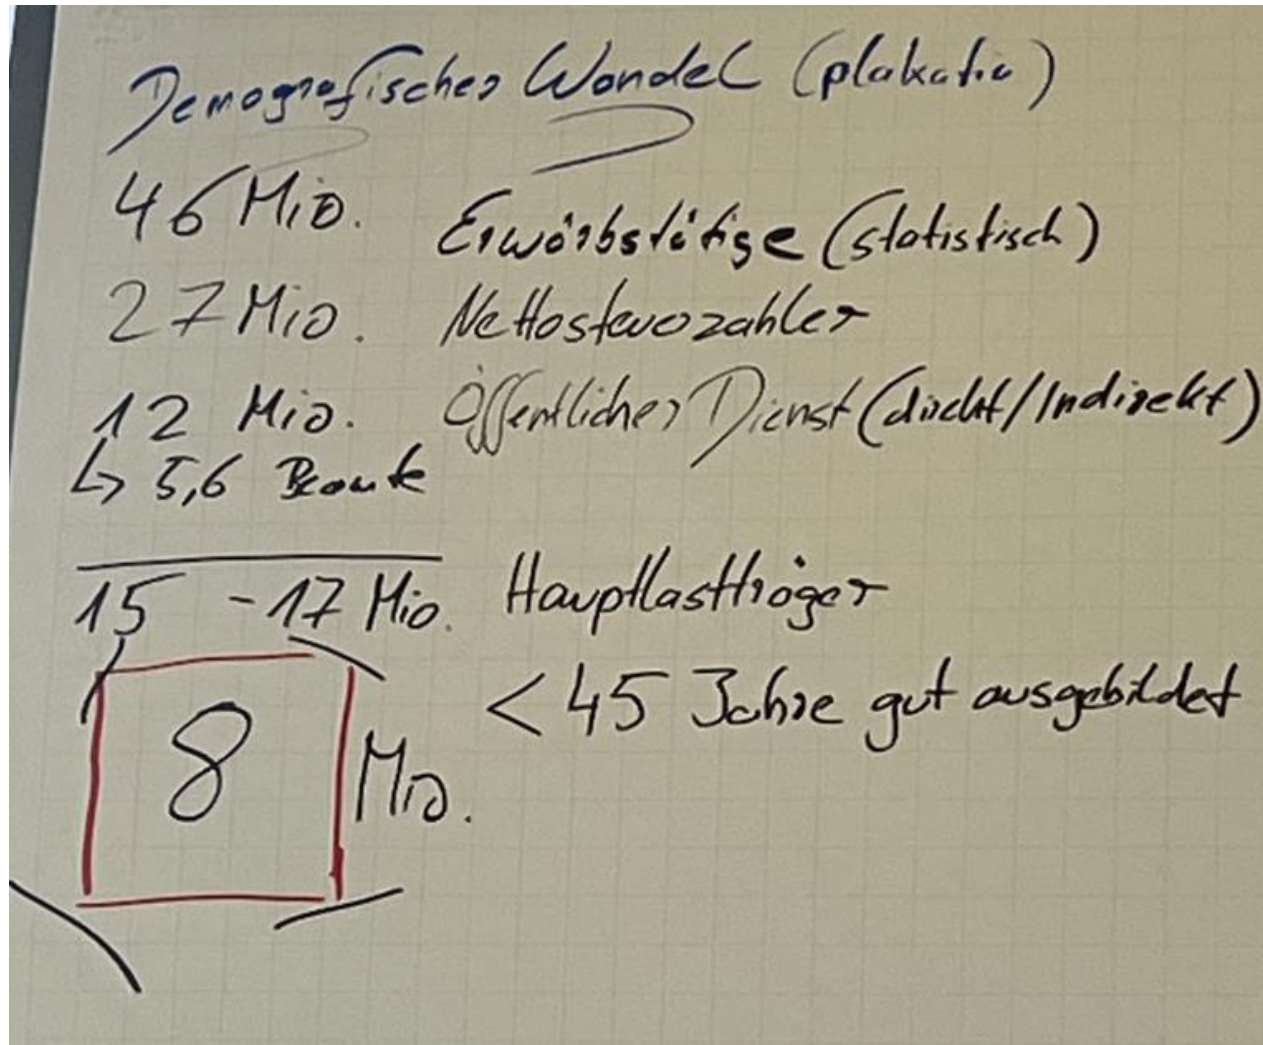 Demografischer Wandel (plakativ)
46 Mio. Erwerbstätige (statistisch)
27 Mio. Nettosteuerzahler
12 Mio. Öffentlicher Dienst (direkt/Indirekt)
↳ 5,6 Beamte
15 - 17 Mio. Hauptlastträger
< 45 Jahre gut ausgebildet
8 Mio.